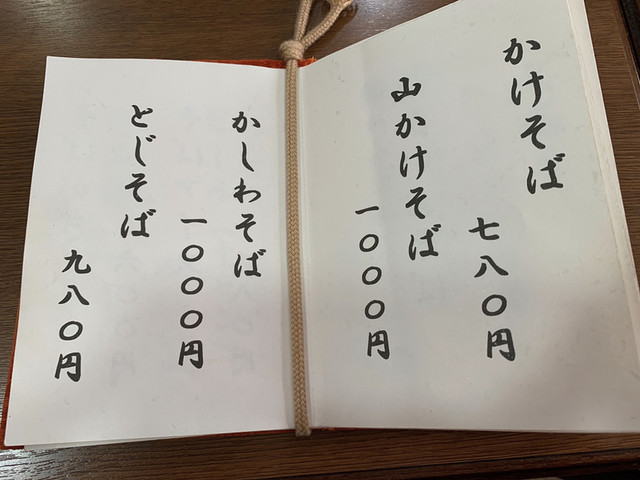 かけそば
七八〇円
山かけそば
一〇〇〇円
かしわそば
一〇〇〇円
とじそば
九八〇円